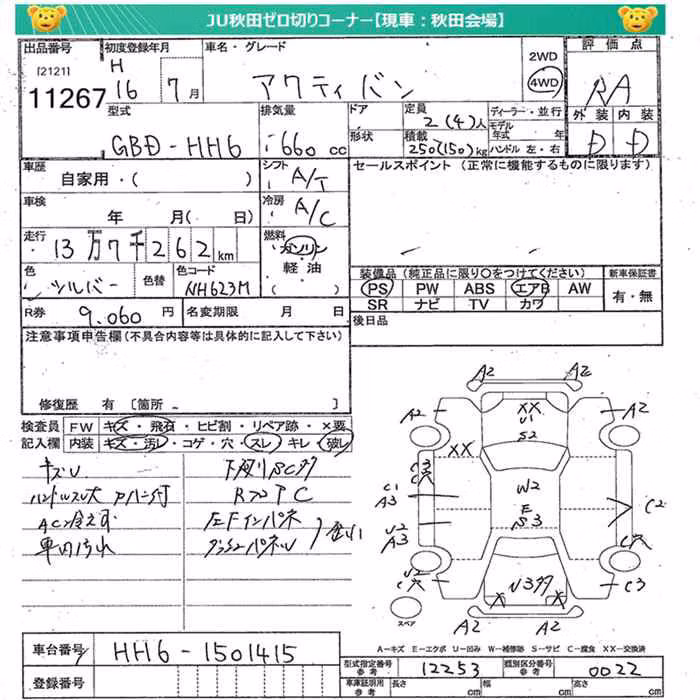 JU秋田ゼロ切りコーナー【現車：秋田会場】
出品番号
[2121]
11267
初度登録年月
H
16 7月
車名・グレード
アクティバン
2WD
4WD
評価点
RA
外装 内装
D D
型式
GBD-HH6
排気量
660 cc
ドア
形状
定員
2(4)人
積載
250(150)kg
ディーラー・並行
モデル
年式 年
ハンドル 左・右
車歴
自家用・( )
シフト
A/T
セールスポイント (正常に機能するものに限ります)
車検
年 月( 日)
冷房
A/C
走行
13万7千262km
燃料
ガソリン
軽油
( )
色
シルバー
色替
色コード
NH623M
装備品(純正品に限り○をつけてください)
PS PW ABS エアB AW
SR ナビ TV カワ
新車保証書
有・無
R券 9.060 円
名変期限 月 日
後日品
注意事項申告欄(不具合内容等は具体的に記入して下さい)
修復歴 有 [箇所 ]
検査員
記入欄
FW キズ・飛石・ヒビ割・リペア跡・×要
内装 キズ・汚レ・コゲ・穴・スレ・キレ・破レ
キズU
ACン冷えず
車内汚れ
下廻りSCタ
左Fインパネ
A2 A2
A2 XX A2
U1
S2
XX
C3
C穴
C1
A3
W2
E
S3
C2
U2
A3
C穴
U2
C穴
C3
A2 A2
スペア
A－キズ E－エクボ U－凹み W－補修跡 S－サビ C－腐食 XX－交換済
車台番号
HH6-1501415
登録番号
型式指定番号
参考
12253
類別区分番号
参考
0022
車庫証明用
参考
長さ cm
幅 cm
高さ cm